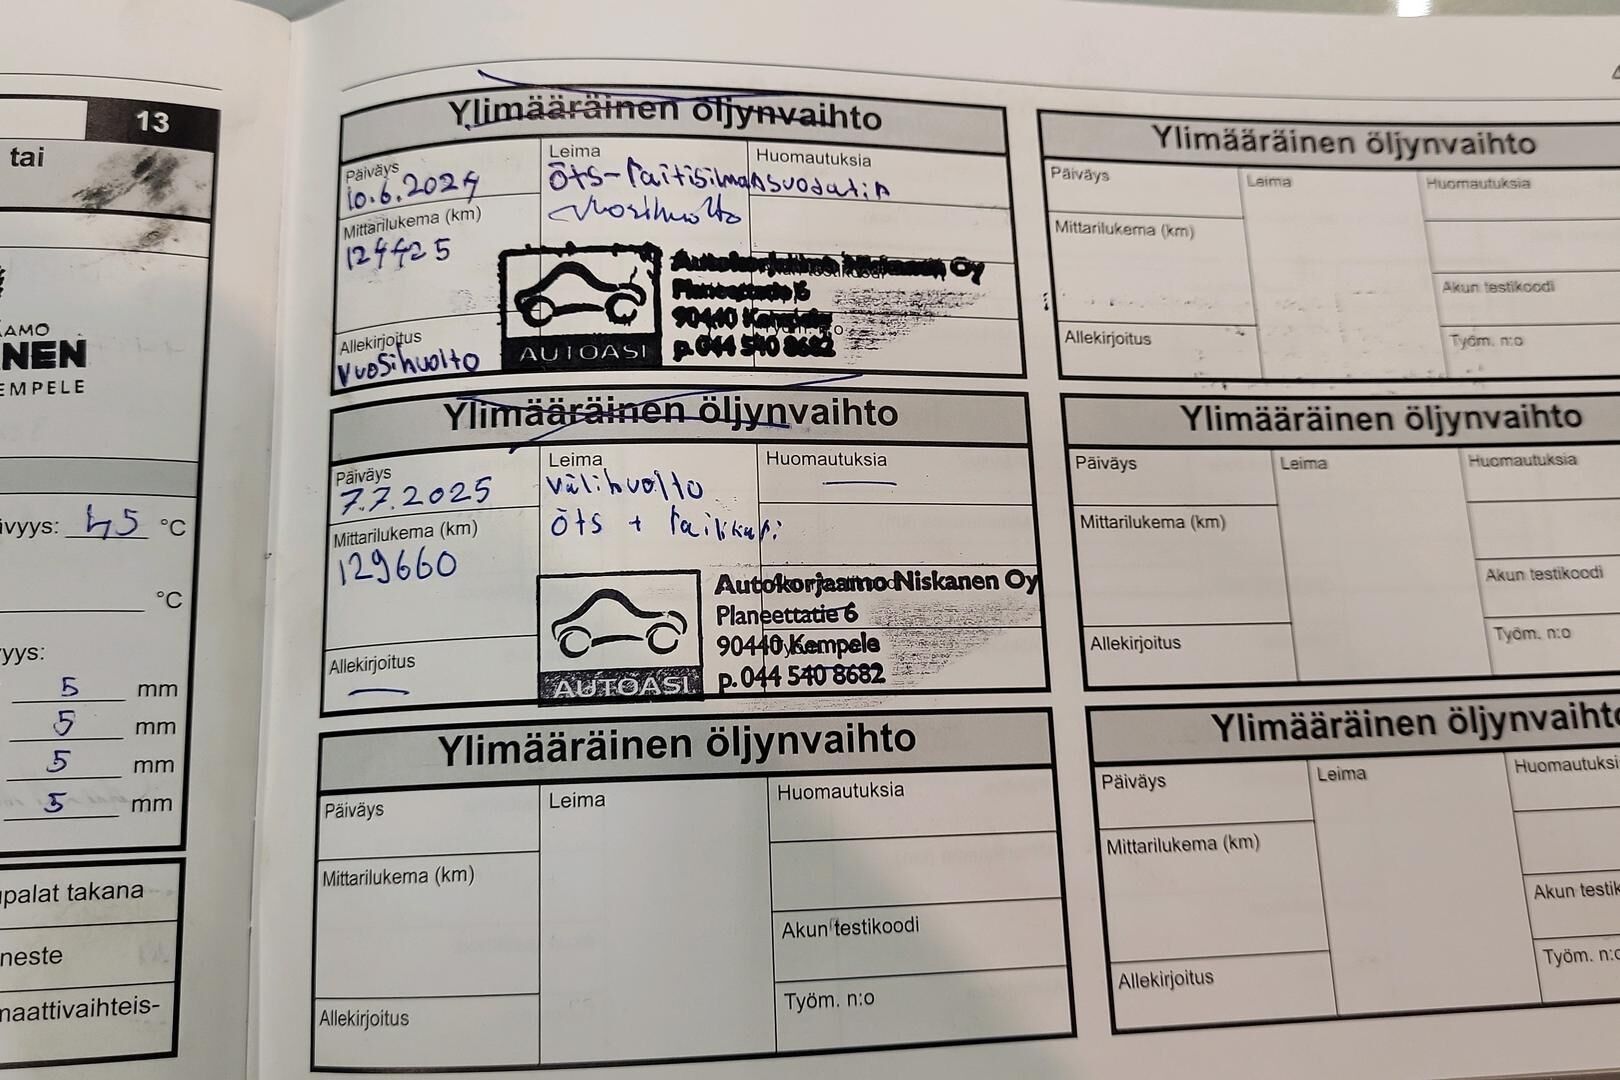 13
tai
AMO
NEN
EMPELE
vyys: 45 °C
°C
yys:
5 mm
5 mm
5 mm
5 mm
palat takana
neste
maattivaihteis-
Ylimääräinen öljynvaihto
Päiväys
10.6.2024
Leima
Huomautuksia
Mittarilukema (km)
124425
Vuosihuolto
Allekirjoitus
Vuosihuolto
AUTOASI
Autokorjaamo Niskanen Oy
Planeettatie 6
90440 Kempele
p. 044 540 8682
Ylimääräinen öljynvaihto
Päiväys
7.7.2025
Leima
välihuolto
öts +
Huomautuksia
Mittarilukema (km)
129660
Allekirjoitus
AUTOASI
Autokorjaamo Niskanen Oy
Planeettatie 6
90440 Kempele
p. 044 540 8682
Ylimääräinen öljynvaihto
Päiväys
Leima
Huomautuksia
Mittarilukema (km)
Akun testikoodi
Allekirjoitus
Työm. n:o
Ylimääräinen öljynvaihto
Päiväys
Leima
Huomautuksia
Mittarilukema (km)
Akun testikoodi
Allekirjoitus
Työm. n:o
Ylimääräinen öljynvaihto
Päiväys
Leima
Huomautuksia
Mittarilukema (km)
Akun testikoodi
Allekirjoitus
Työm. n:o
Ylimääräinen öljynvaihto
Päiväys
Leima
Huomautuksi
Mittarilukema (km)
Akun testik
Allekirjoitus
Työm. n:o